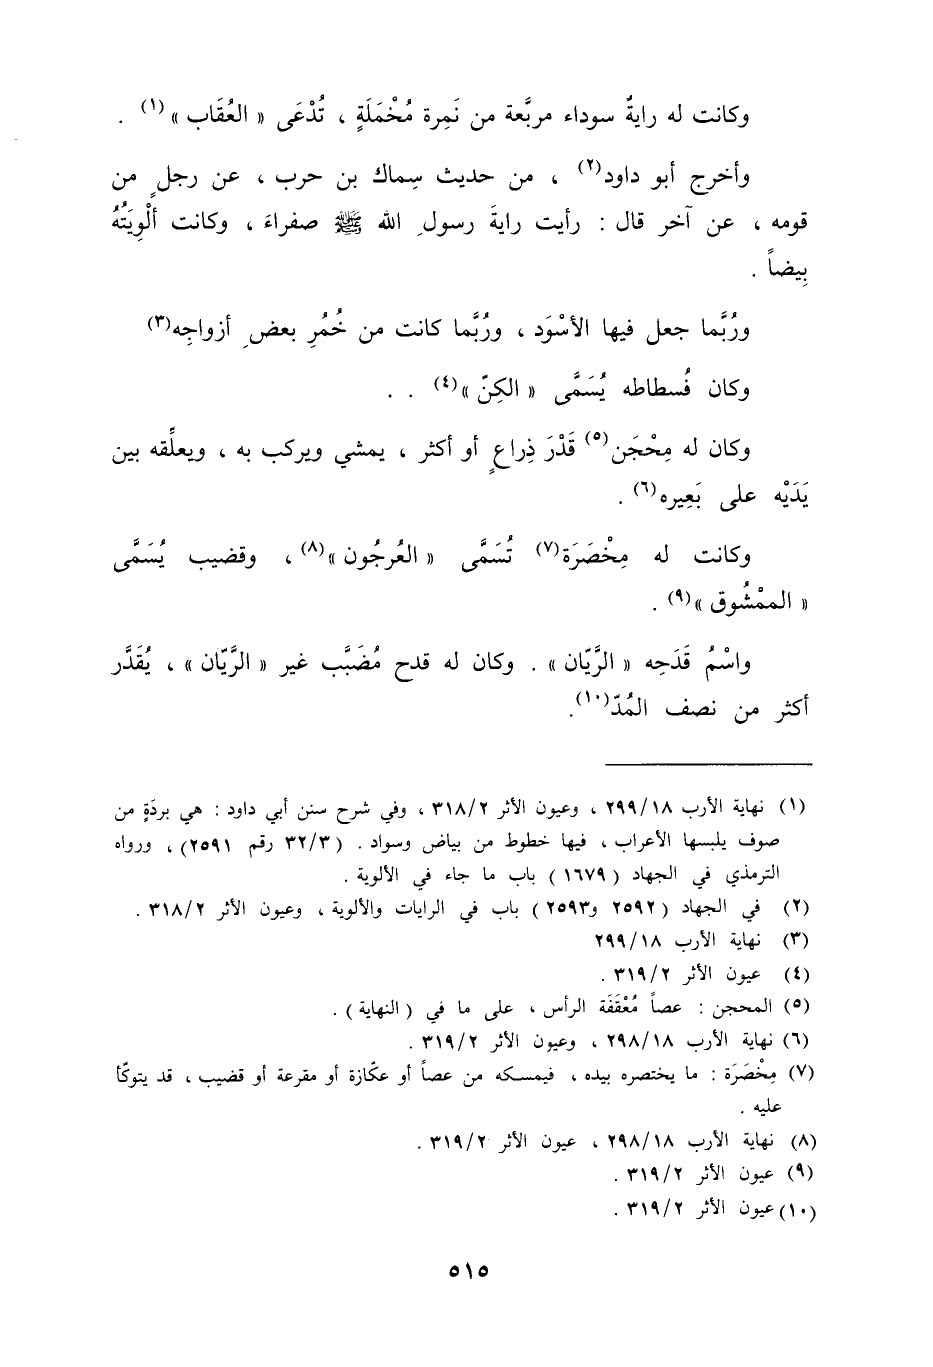 وكانت له رايةٌ سوداء مربَّعة من نَمِرة مُخْمَلَةٍ ، تُدْعَى « العُقَاب »(١) .
وأخرج أبو داود(٢) ، من حديث سِماك بن حرب ، عن رجلٍ من
قومه ، عن آخر قال : رأيت رايةَ رسولِ الله ﷺ صفراءَ ، وكانت ألْوِيَتُهُ
بِيضاً .
ورُبَّما جعل فيها الأسْوَد ، ورُبَّما كانت من خُمُرِ بعضِ أزواجِه(٣)
وكان فُسطاطه يُسَمَّى « الكِنّ »(٤) . .
وكان له مِحْجَن(٥) قَدْرَ ذِراعٍ أو أكثر ، يمشي ويركب به ، ويعلِّقه بين
يَدَيْه على بَعِيره(٦) .
وكانت له مِخْصَرَة(٧) تُسَمَّى « العُرجُون »(٨) ، وقضيب يُسَمَّى
« الممْشُوق »(٩) .
واسْمُ قَدَحِه « الرَّيّان » . وكان له قدح مُضَبَّب غير « الرَّيّان » ، يُقَدَّر
أكثر من نصف المُدّ(١٠).
(١) نهاية الأرب ٢٩٩/١٨ ، وعيون الأثر ٣١٨/٢ ، وفي شرح سنن أبي داود : هي بردَةٍ من
صوف يلبسها الأعراب ، فيها خطوط من بياض وسواد . (٣٢/٣ رقم ٢٥٩١) ، ورواه
الترمذي في الجهاد (١٦٧٩) باب ما جاء في الألوية .
(٢) في الجهاد (٢٥٩٢ و٢٥٩٣) باب في الرايات والألوية ، وعيون الأثر ٣١٨/٢ .
(٣) نهاية الأرب ٢٩٩/١٨
(٤) عيون الأثر ٣١٩/٢ .
(٥) المحجن : عصاً مُعْقَفَة الرأس ، على ما في (النهاية) .
(٦) نهاية الأرب ٢٩٨/١٨ ، وعيون الأثر ٣١٩/٢ .
(٧) مِخْصَرَة : ما يختصره بيده ، فيمسكه من عصاً أو عكّازة أو مقرعة أو قضيب ، قد يتوكّأ
عليه .
(٨) نهاية الأرب ٢٩٨/١٨ ، عيون الأثر ٣١٩/٢ .
(٩) عيون الأثر ٣١٩/٢ .
(١٠) عيون الأثر ٣١٩/٢ .
٥١٥